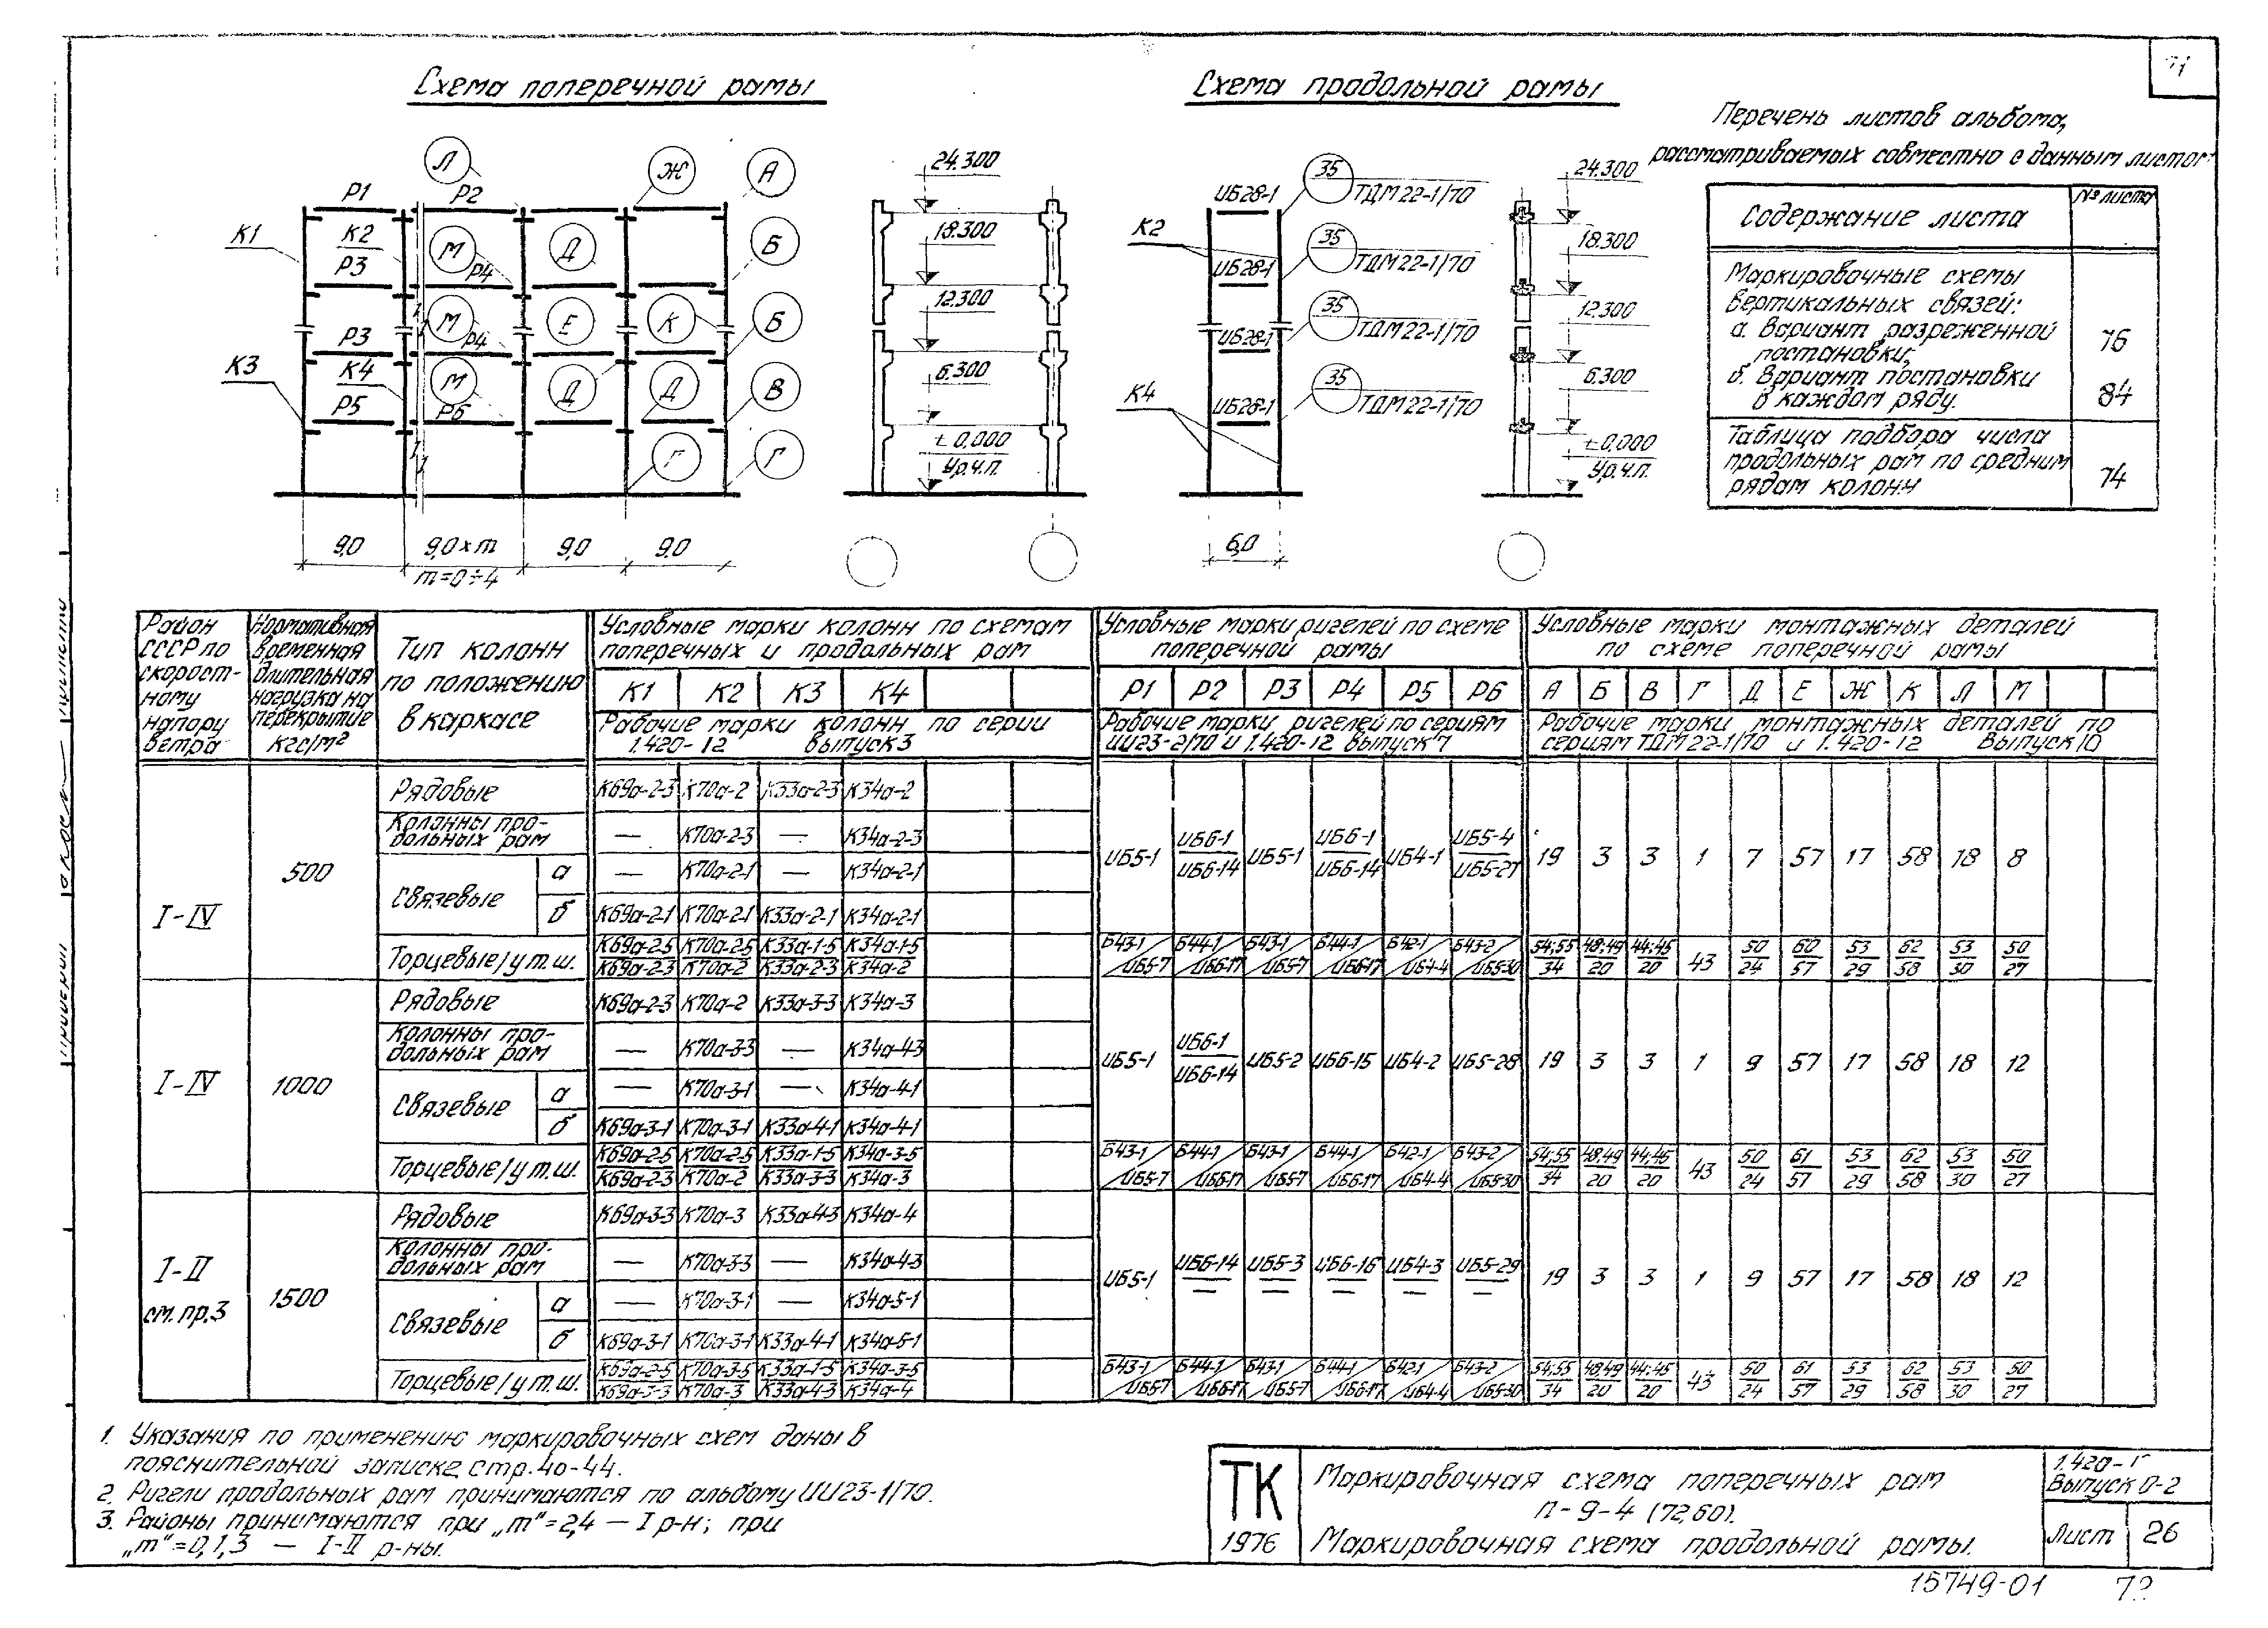 71
Схема поперечной рамы
Схема продольной рамы
Перечень листов альбома,
рассматриваемых совместно с данным листом
Содержание листа
№ листа
Маркировочные схемы
вертикальных связей:
а. Вариант разреженной
постановки;
76
б. Вариант постановки
в каждом ряду.
84
Таблица подбора числа
продольных рам по средним
рядам колонн
74
Л Ж А
Р1 Р2
К1 К2 М Д Б
Р3 Р4
М Е К Б
Р3 Р4
К3 К4 М Д Д В
Р5 Р6
Г Г
24.300
18.300
12.300
6.300
± 0,000
Ур.ч.п.
9,0 9,0 × m 9,0 9,0
m = 0 ÷ 4
ИБ28-1 35 ТДМ 22-1/70
К2
ИБ28-1 35 ТДМ 22-1/70
ИБ28-1 35 ТДМ 22-1/70
К4
ИБ28-1 35 ТДМ 22-1/70
6,0
24.300
18.300
12.300
6.300
± 0,000
Ур.ч.п.
Район СССР по скорост- ному напору ветра
Нормативная временная длительная нагрузка на перекрытие кгс/м²
Тип колонн по положению в каркасе
Условные марки колонн по схемам поперечных и продольных рам
Условные марки ригелей по схеме поперечной рамы
Условные марки монтажных деталей по схеме поперечной рамы
К1 К2 К3 К4 Р1 Р2 Р3 Р4 Р5 Р6 А Б В Г Д Е Ж К Л М
Рабочие марки колонн по серии 1.420-12 выпуск 3
Рабочие марки ригелей по сериям ИИ23-2/70 и 1.420-12 выпуск 7
Рабочие марки монтажных деталей по сериям ТДМ 22-1/70 и 1.420-12 выпуск 10
I-IV 500
Рядовые К69а-2-3 К70а-2 К33а-2-3 К34а-2
Колонны про- дольных рам — К70а-2-3 — К34а-2-3
Связевые а — К70а-2-1 — К34а-2-1
б К69а-2-1 К70а-2-1 К33а-2-1 К34а-2-1
ИБ5-1 ИБ6-1/ИБ6-14 ИБ5-1 ИБ6-1/ИБ6-14 ИБ4-1 ИБ5-4/ИБ5-27 19 3 3 1 7 57 17 58 18 8
Торцевые/у т.ш. К69а-2-5/К69а-2-3 К70а-2-5/К70а-2 К33а-1-5/К33а-2-3 К34а-1-5/К34а-2 Б43-1/ИБ5-7 Б44-1/ИБ6-17 Б43-1/ИБ5-7 Б44-1/ИБ6-17 Б42-1/ИБ4-4 Б43-2/ИБ5-30 54;55/34 48;49/20 44;45/20 43 50/24 60/57 53/29 62/58 53/30 50/27
I-IV 1000
Рядовые К69а-2-3 К70а-2 К33а-3-3 К34а-3
Колонны про- дольных рам — К70а-3-3 — К34а-4-3
Связевые а — К70а-3-1 — К34а-4-1
б К69а-3-1 К70а-3-1 К33а-4-1 К34а-4-1
ИБ5-1 ИБ6-1/ИБ6-14 ИБ5-2 ИБ6-15 ИБ4-2 ИБ5-28 19 3 3 1 9 57 17 58 18 12
Торцевые/у т.ш. К69а-2-5/К69а-2-3 К70а-2-5/К70а-2 К33а-1-5/К33а-3-3 К34а-3-5/К34а-3 Б43-1/ИБ5-7 Б44-1/ИБ6-17 Б43-1/ИБ5-7 Б44-1/ИБ6-17 Б42-1/ИБ4-4 Б43-2/ИБ5-30 54;55/34 48;49/20 44;45/20 43 50/24 61/57 53/29 62/58 53/30 50/27
I-II см. пр.3 1500
Рядовые К69а-3-3 К70а-3 К33а-4-3 К34а-4
Колонны про- дольных рам — К70а-3-3 — К34а-4-3
Связевые а — К70а-3-1 — К34а-5-1
б К69а-3-1 К70а-3-1 К33а-4-1 К34а-5-1
ИБ5-1 ИБ6-14 ИБ5-3 ИБ6-16 ИБ4-3 ИБ5-29 19 3 3 1 9 57 17 58 18 12
Торцевые/у т.ш. К69а-2-5/К69а-3-3 К70а-3-5/К70а-3 К33а-1-5/К33а-4-3 К34а-3-5/К34а-4 Б43-1/ИБ5-7 Б44-1/ИБ6-17 Б43-1/ИБ5-7 Б44-1/ИБ6-17 Б42-1/ИБ4-4 Б43-2/ИБ5-30 54;55/34 48;49/20 44;45/20 43 50/24 61/57 53/29 62/58 53/30 50/27
1. Указания по применению маркировочных схем даны в
пояснительной записке, стр. 40-44.
2. Ригели продольных рам принимаются по альбому ИИ23-1/70.
3. Районы принимаются при „m“=2,4 — I р-н; при
„m“=0,1,3 — I-II р-ны.
ТК
1976
Маркировочная схема поперечных рам
п-9-4 (72,60).
Маркировочная схема продольной рамы.
Выпуск 0-2
Лист 26
15749-01